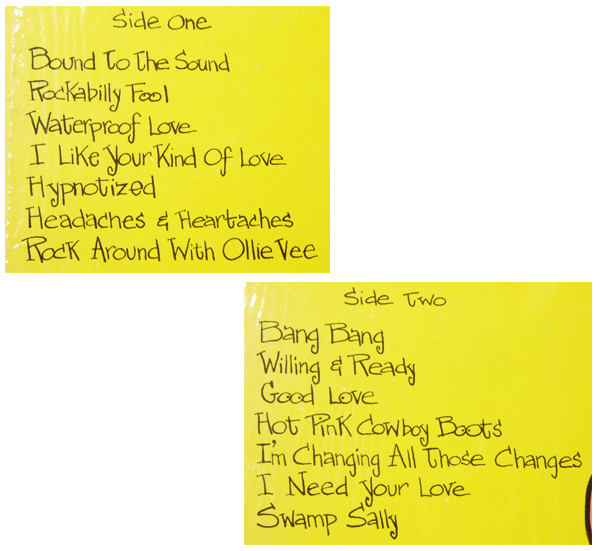 Side One
Bound To The Sound
Rockabilly Fool
Waterproof Love
I Like Your Kind Of Love
Hypnotized
Headaches & Heartaches
Rock Around With Ollie Vee
Side Two
Bang Bang
Willing & Ready
Good Love
Hot Pink Cowboy Boots
I'm Changing All Those Changes
I Need Your Love
Swamp Sally